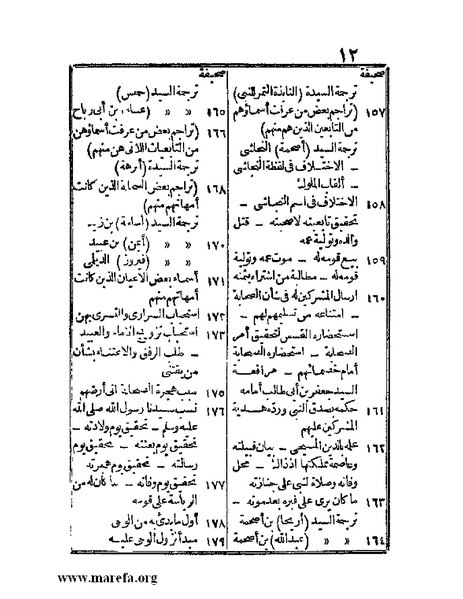 ١٢
صحيفة
ترجمة السيدة (النابذة التمر للنبي)
١٥٧ (تراجم بعض من عرفت أسماؤهم
من التابعين الذين هم منهم)
ترجمة السيد (أصحمة) النجاشى
– الاختلاف فى لفظة النجاشى
– ألقاب الملوك
١٥٨ الاختلاف فى اسم النجاشى –
تحقيق تابعيته لا صحبته – قتل
والده وتولية عمه
١٥٩ بيع قومه له – موت عمه وتولية
قومه له – مطالبة من اشتراه بثمنه
١٦٠ ارسال المشركين له فى شأن الصحابة
– امتناعه من تسليمهم لهم –
استحضاره القسس لتحقيق أمر
الصحابة – استحضاره الصحابة
أمام خصمائهم – مرافعة
السيد جعفر بن أبى طالب أمامه
١٦١ حكمه بصدق النبى ورده هدية
المشركين عليهم
١٦٢ علمه بالدين المسيحى – بيان قبيلته
وعاصمة مملكتها اذ ذاك – محل
وفاته وصلاة النبى على جنازته
١٦٣ ما كان يرى على قبره بعد موته –
ترجمة السيد (أريحا) بن أصحمة
١٦٤ » » (عبدالله) بن أصحمة
صحيفة
ترجمة السيد
١٦٥ » » (عطاء) بن أبى رباح
١٦٦ (تراجم بعض من عرفت أسماؤهن
من التابعيات اللاتى هن منهم)
ترجمة السيدة (أبرهة)
١٦٨ (تراجم بعض الصحابة الذين كانت
أمهاتهم منهم)
ترجمة السيد (أسامة) بن زيد
١٧٠ » » (أيمن) بن عبيد
» » (فيروز) الديلمى
١٧١ أسماء بعض الاعيان الذين كانت
أمهاتهم منهم
١٧٢ استحباب السرارى والتسرى بهن
١٧٣ استحباب تزويج الاماء والعبيد
– طلب الرفق والاعتناء بشأن
من يقتنى
١٧٥ سبب هجرة الصحابة الى أرضهم
١٧٦ نسب سيدنا رسول الله صلى الله
عليه وسلم – تحقيق يوم ولادته –
تحقيق يوم بعثته – تحقيق يوم
رسالته – تحقيق يوم هجرته
١٧٧ تحقيق يوم وفاته – ما كان له من
الرياسة على قومه
١٧٨ أول ما بدئ به من الوحى
١٧٩ مبدأ نزول الوحى عليه
www.marefa.org